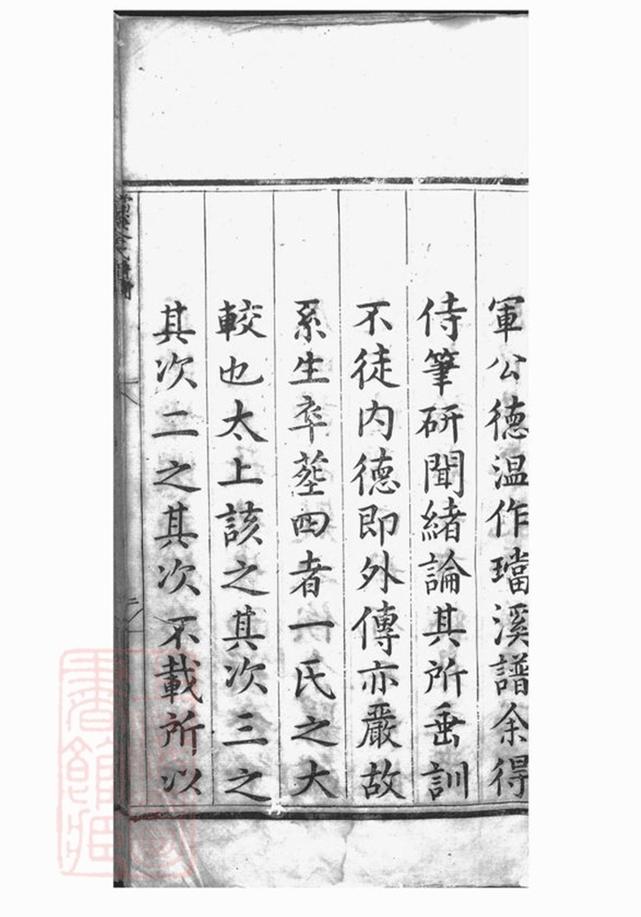 軍公德温作璫溪譜余得
侍筆研聞緒論其所垂訓
不徒内德即外傳亦嚴故
系生卒塟四者一氏之大
較也太上該之其次三之
其次二之其次不載所以